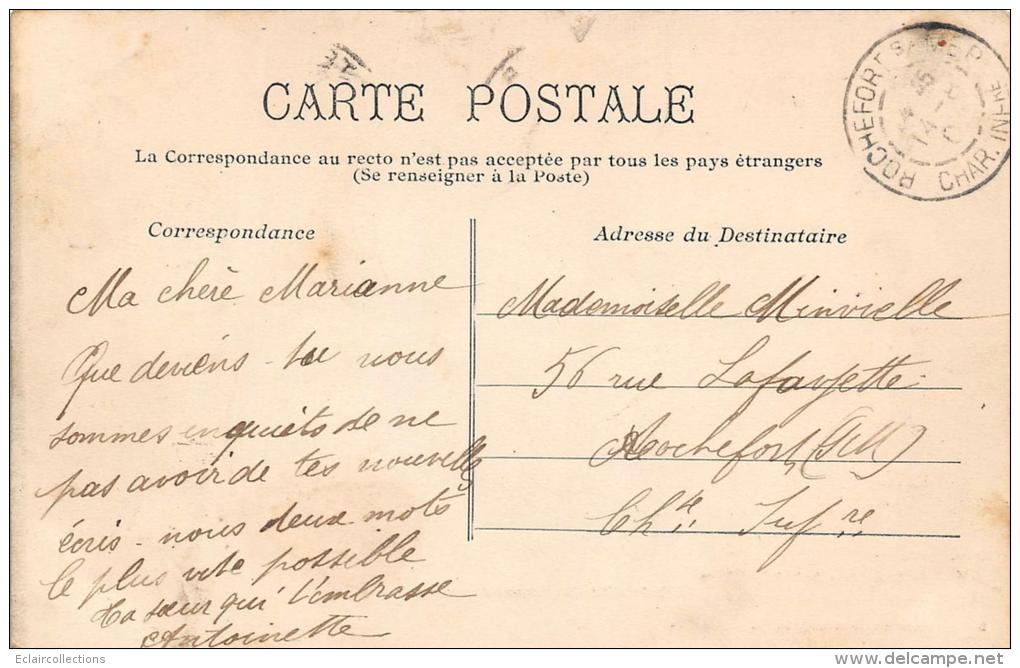 CARTE POSTALE
La Correspondance au recto n'est pas acceptée par tous les pays étrangers
(Se renseigner à la Poste)
ROCHEFORT S. MER
CHAR. INFRE
Correspondance
Ma chère Marianne
Que deviens-tu nous
sommes inquiets de ne
pas avoir de tes nouvelles
écris-nous deux mots
le plus vite possible
Ta sœur qui t'embrasse
Antoinette
Adresse du Destinataire
Mademoiselle Minvielle
56 rue Lafayette
Rochefort (S/M)
Ch.te Inf.re
Eclaircollections
delcampe.net